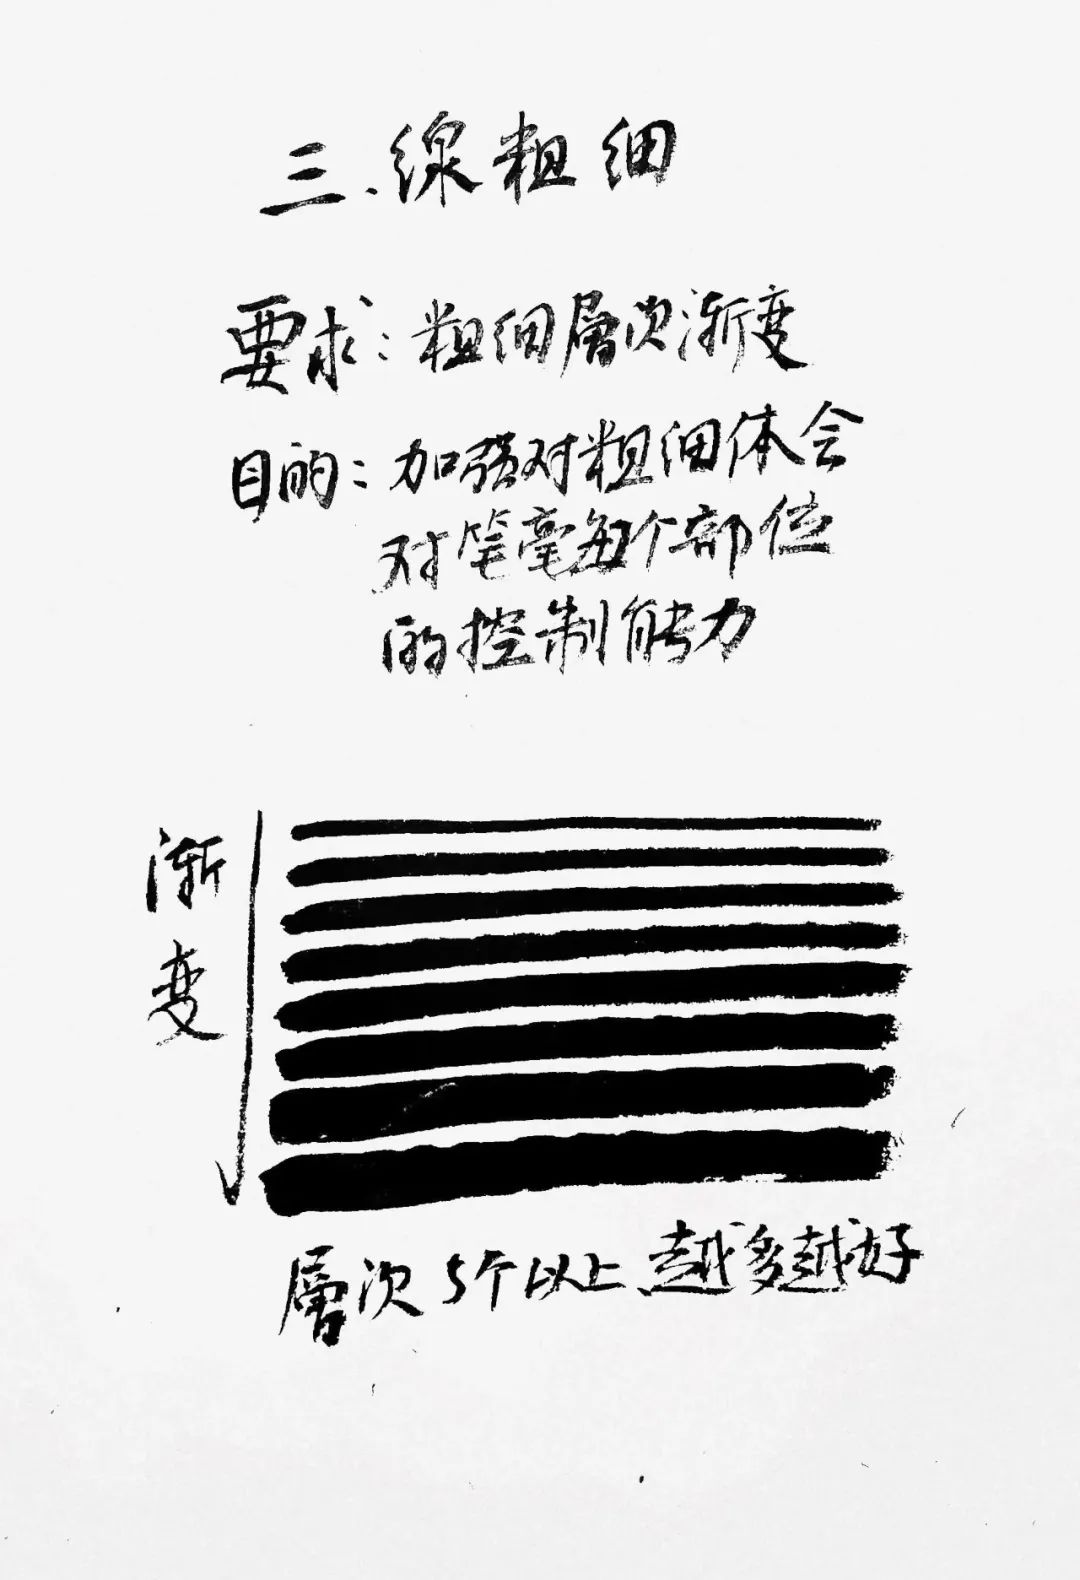 三、線粗细
要求：粗细層次渐度
目的：加强对粗细体会
对笔毫每个部位
的控制能力
渐变
層次5个以上、越多越好